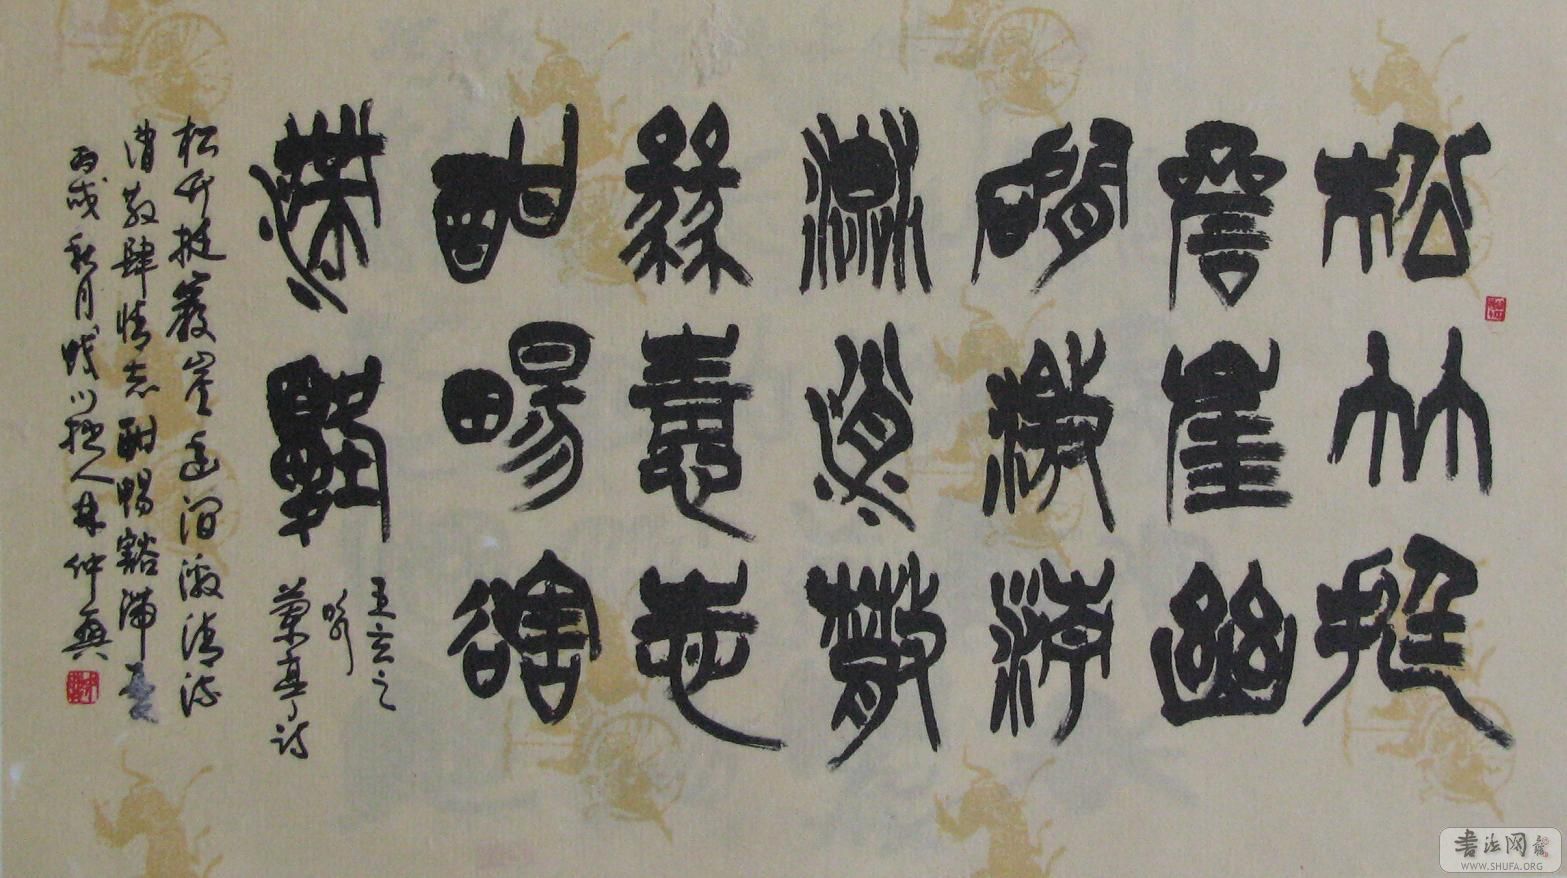 松竹挺
巖崖幽
澗激清
流瀟散
肆情志
酣暢豁
滯憂
王玄之
蘭亭詩
松竹挺巖崖幽澗激清流
瀟散肆情志酣暢豁滯憂
丙戌秋月人林仲興
書法网
WWW.SHUFA.ORG